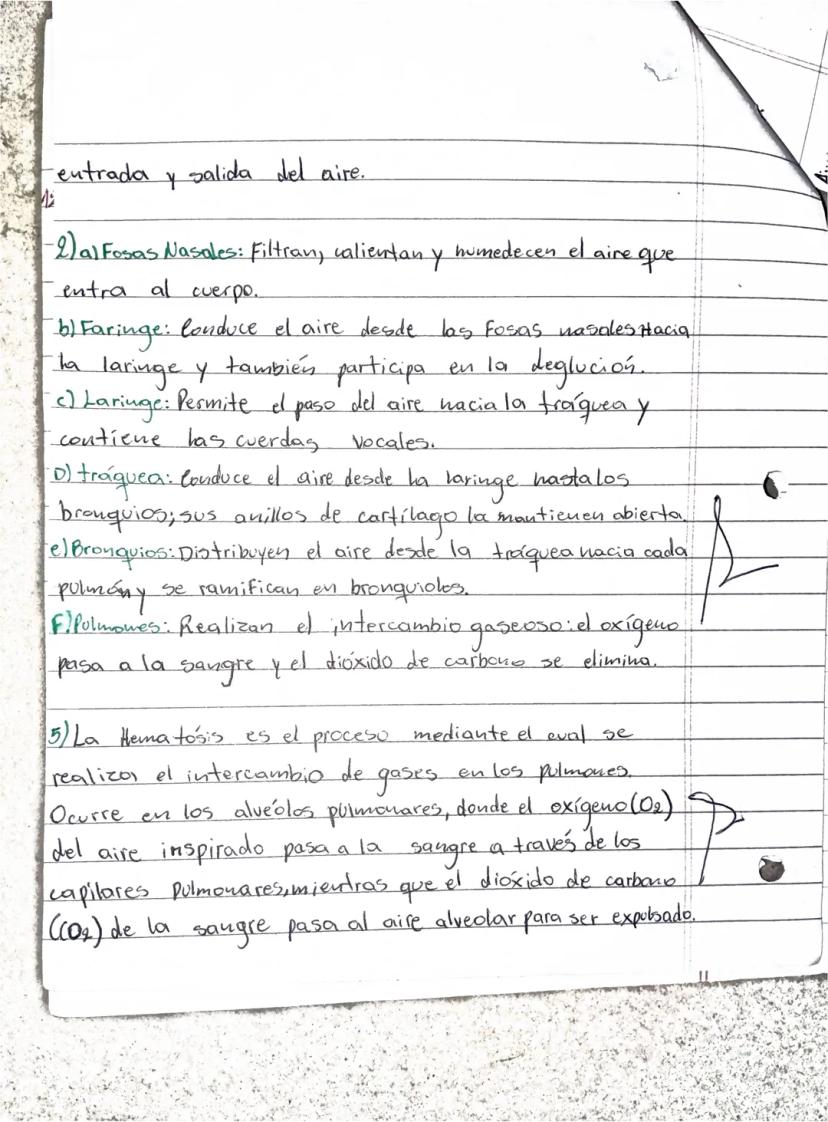 entrada y salida del aire.
2) a) Fosas Nasales: Filtran, calientan y humedecen el aire que
entra al cuerpo.
b) Faringe: Conduce el aire desde las Fosas nasales Hacia
la laringe y también participa en la deglución.
c) Laringe: Permite el paso del aire hacia la tráquea y
contiene las cuerdas vocales.
D) tráquea: Conduce el aire desde la laringe hasta los
bronquios; sus anillos de cartílago la mantienen abierta.
e) Bronquios: Distribuyen el aire desde la tráquea hacia cada
pulmón y se ramifican en bronquiolos.
F) Pulmones: Realizan el intercambio gaseoso: el oxígeno
pasa a la sangre y el dióxido de carbono se elimina.
5) La Hematósis es el proceso mediante el cual se
realiza el intercambio de gases en los pulmones.
Ocurre en los alvéolos pulmonares, donde el oxígeno (O2)
del aire inspirado pasa a la sangre a través de los
capilares pulmonares, mientras que el dióxido de carbono
(CO2) de la sangre pasa al aire alveolar para ser expulsado.